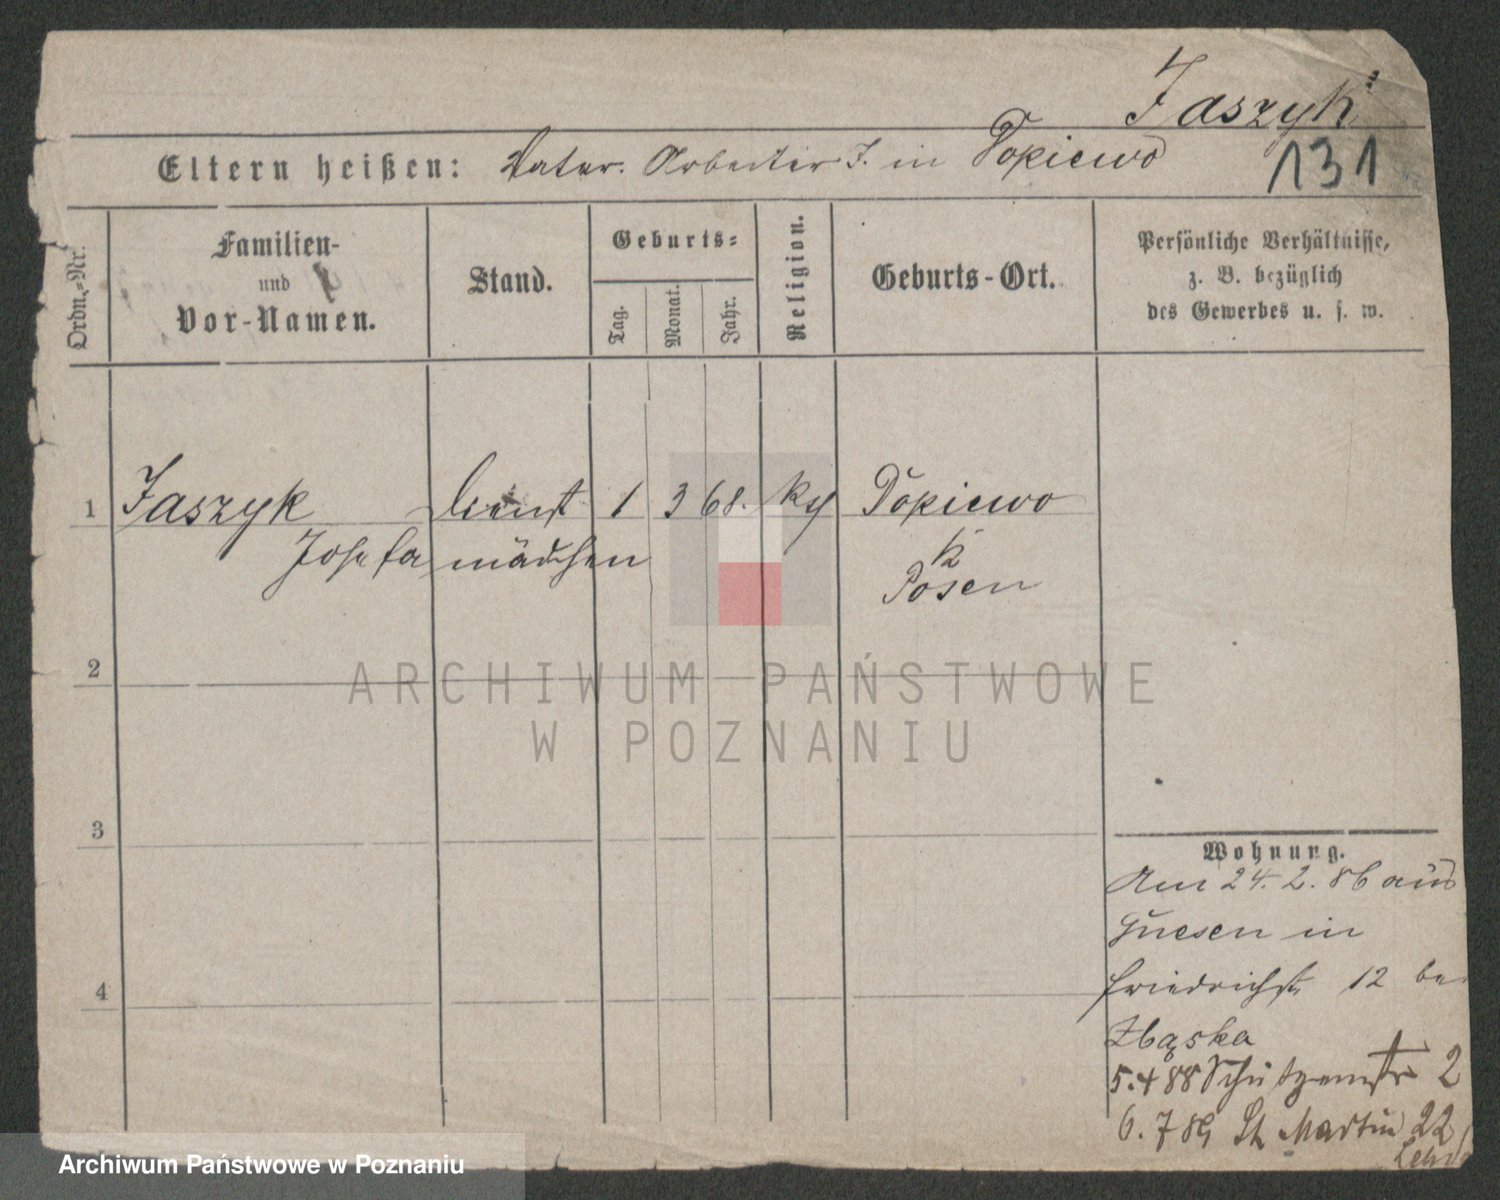 Jaszyk
Eltern heißen: Vater. Arbeiter J. in Dopiewo
131
Ordn.-Nr.
Familien-
und
Vor-Namen.
Stand.
Geburts-
Tag.
Monat.
Jahr.
Religion.
Geburts-Ort.
Persönliche Verhältnisse,
z. B. bezüglich
des Gewerbes u. s. w.
1 Jaszyk Dienst 1 3 68. Dopiewo
Josefa mädchen
Posen
2
ARCHIWUM PAŃSTWOWE
W POZNANIU
3
4
Wohnung.
Am 24. 2. 86 aus
Gnesen in
Friedrichstr 12
Zbąska
5.4 88 Schützenstr 2
6. 7 89 St Martin 22
Archiwum Państwowe w Poznaniu